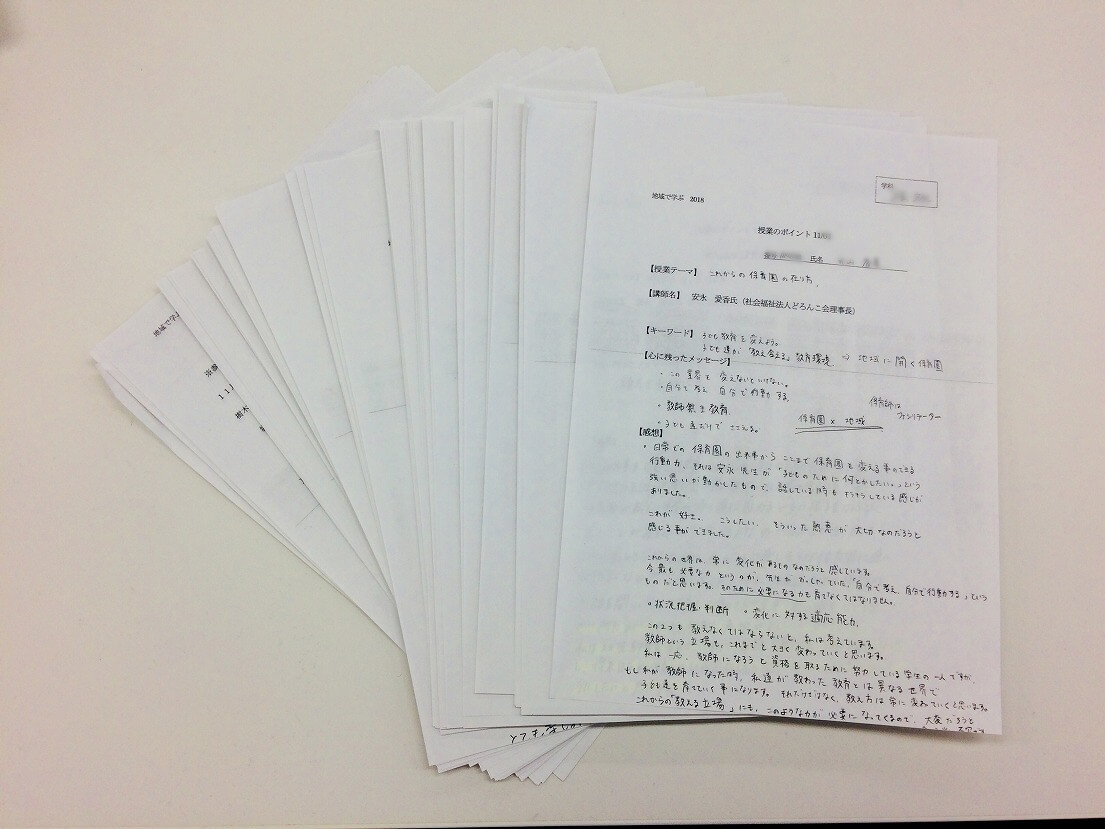 学科
地域で学ぶ 2018
授業のポイント 11/
氏名
【授業テーマ】 これからの保育園の在り方。
【講師名】 安永 愛香氏（社会福祉法人どろんこ会理事長）
【キーワード】 子ども教育を変えよう。
子ども達が「教え合える」教育環境 ⇒ 地域に開く保育園
【心に残ったメッセージ】
・この業界を変えないといけない。
・自分で考え 自分で行動する。
・教師無き教育
・子ども達だけで
保育園 × 地域
保育師は
ファシリテーター
【感想】
・日常での保育園の出来事から ここまで保育園を変える事のできる
行動力、それは安永先生が「子どものために何とかしたい。」という
強い思いが動かしたもので、話している時もキラキラしている感じが
ありました。
これが好き。 こうしたい。 そういった熱意が大切なのだろうと
感じる事ができました。
これからの世界は、常に変化があるものなのだろうと感じています。
今最も必要な力というのが、先生がおっしゃっていた、「自分で考え、自分で行動する」という
ものだと思います。そのために必要になる力も育てなくてはなりません。
○状況把握・判断 ○変化に対する適応能力。
この2つも教えなくてはならないと、私は考えています。
教師という立場も、これまでと大きく変わっていくと思います。
私は一応、教師になろうと資格を取るために努力している学生の一人ですが、
もし私が教師になった時、私達が教わった教育とは異なる世界で
子ども達を育てていく事になります。それだけではなく、教え方は常に変わっていくと思います。
これからの「教える立場」にも、このような力が必要になってくるので、大変だろうと
地域で学ぶ